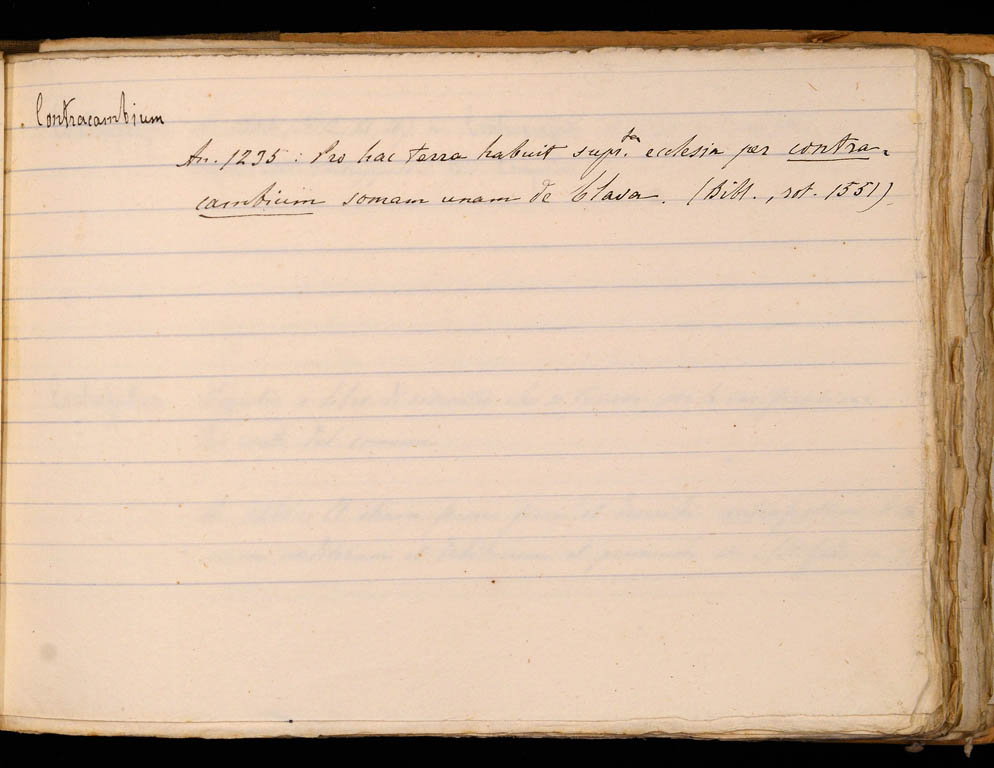 Contracambium
An. 1295 : Pro hac terra habuit supr.ta ecclesia per contra-
cambium somam unam de blava. (Bibl., rot. 1551)